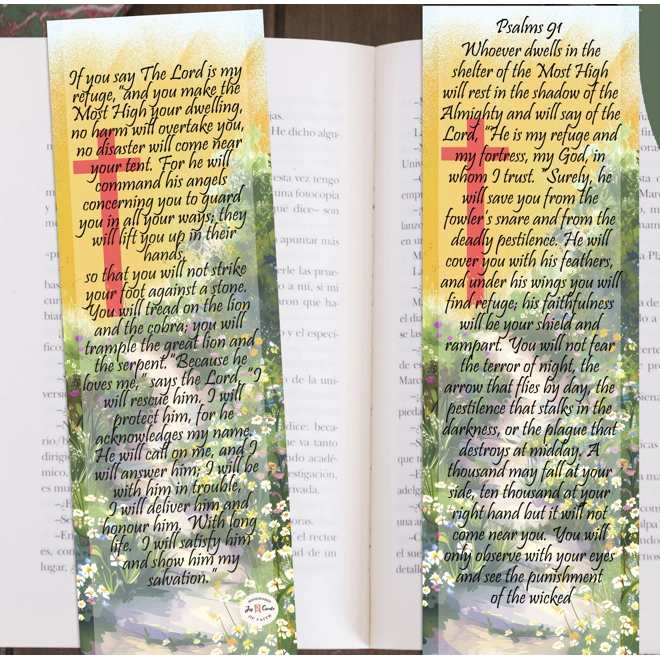 If you say "The Lord is my
refuge,"and you make the
Most High your dwelling,
no harm will overtake you,
no disaster will come near
your tent. For he will
command his angels
concerning you to guard
you in all your ways; they
will lift you up in their
hands,
so that you will not strike
your foot against a stone.
You will tread on the lion
and the cobra; you will
trample the great lion and
the serpent."Because he
loves me," says the Lord, "I
will rescue him, I will
protect him, for he
acknowledges my name.
He will call on me, and I
will answer him; I will be
with him in trouble,
I will deliver him and
honour him. With long
life. I will satisfy him
and show him my
salvation."
Joy Cards
OF FAITH
He dicho algu-
esta vez tengo
una fotocopia
qué dice– son
apuntar más
erle las prue-
a mí, si mi
aron que ha-
y el especí-
de la uni-
dice: beca-
va tanto
rado acadé-
stigación,
rivada.
oras.
el rector
ad de un
Psalms 91
Whoever dwells in the
shelter of the Most High
will rest in the shadow of the
Almighty and will say of the
Lord, "He is my refuge and
my fortress, my God, in
whom I trust. "Surely, he
will save you from the
fowler's snare and from the
deadly pestilence. He will
cover you with his feathers,
and under his wings you will
find refuge; his faithfulness
will be your shield and
rampart. You will not fear
the terror of night, the
arrow that flies by day, the
pestilence that stalks in the
darkness, or the plague that
destroys at midday. A
thousand may fall at your
side, ten thousand at your
right hand but it will not
come near you. You will
only observe with your eyes
and see the punishment
of the wicked